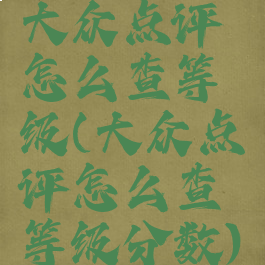 大众点评
怎么查等
级(大众点
评怎么查
等级分数)